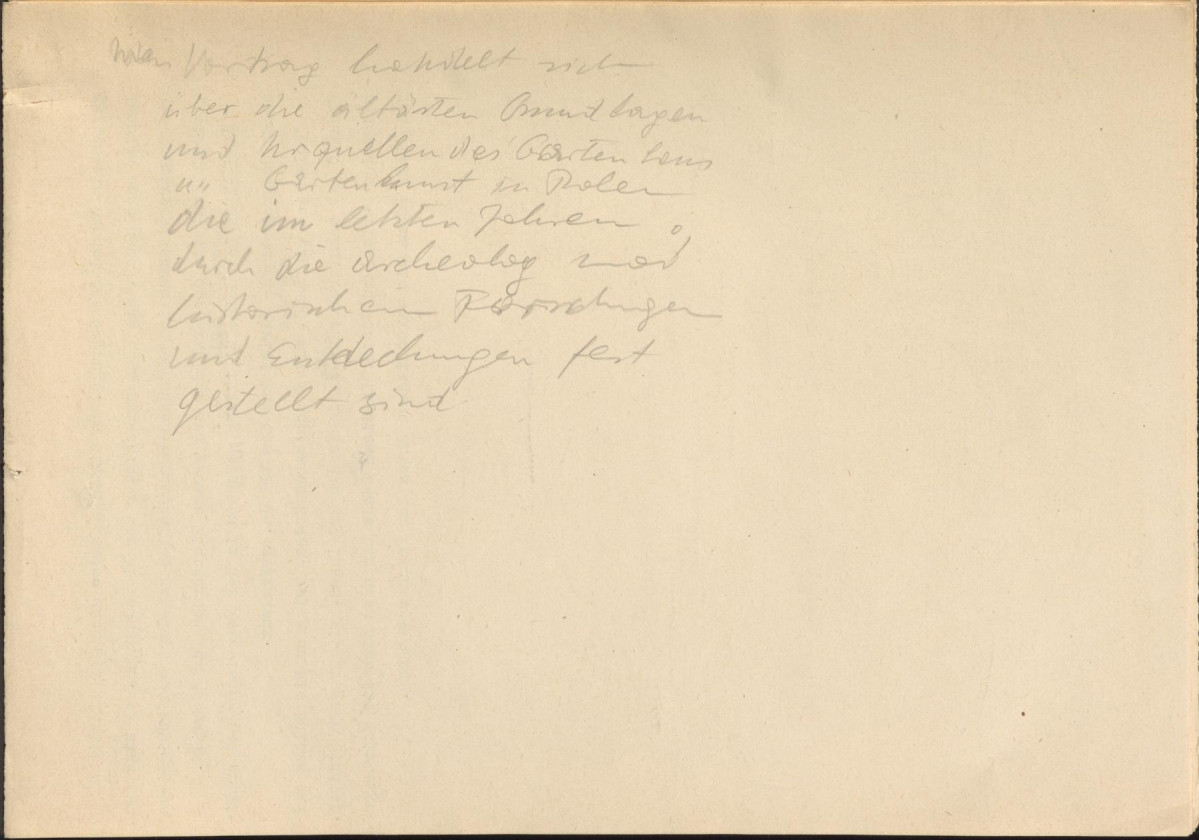 Mein Vortrag behandelt sich
über die ältästen Grundlagen
und Urquellen des Gartenbaus
u" Gartenkunst in Polen
die im letzten Jahren
durch die Archeolog und
historischen Forschungen
und Entdeckungen fest
gestellt sind